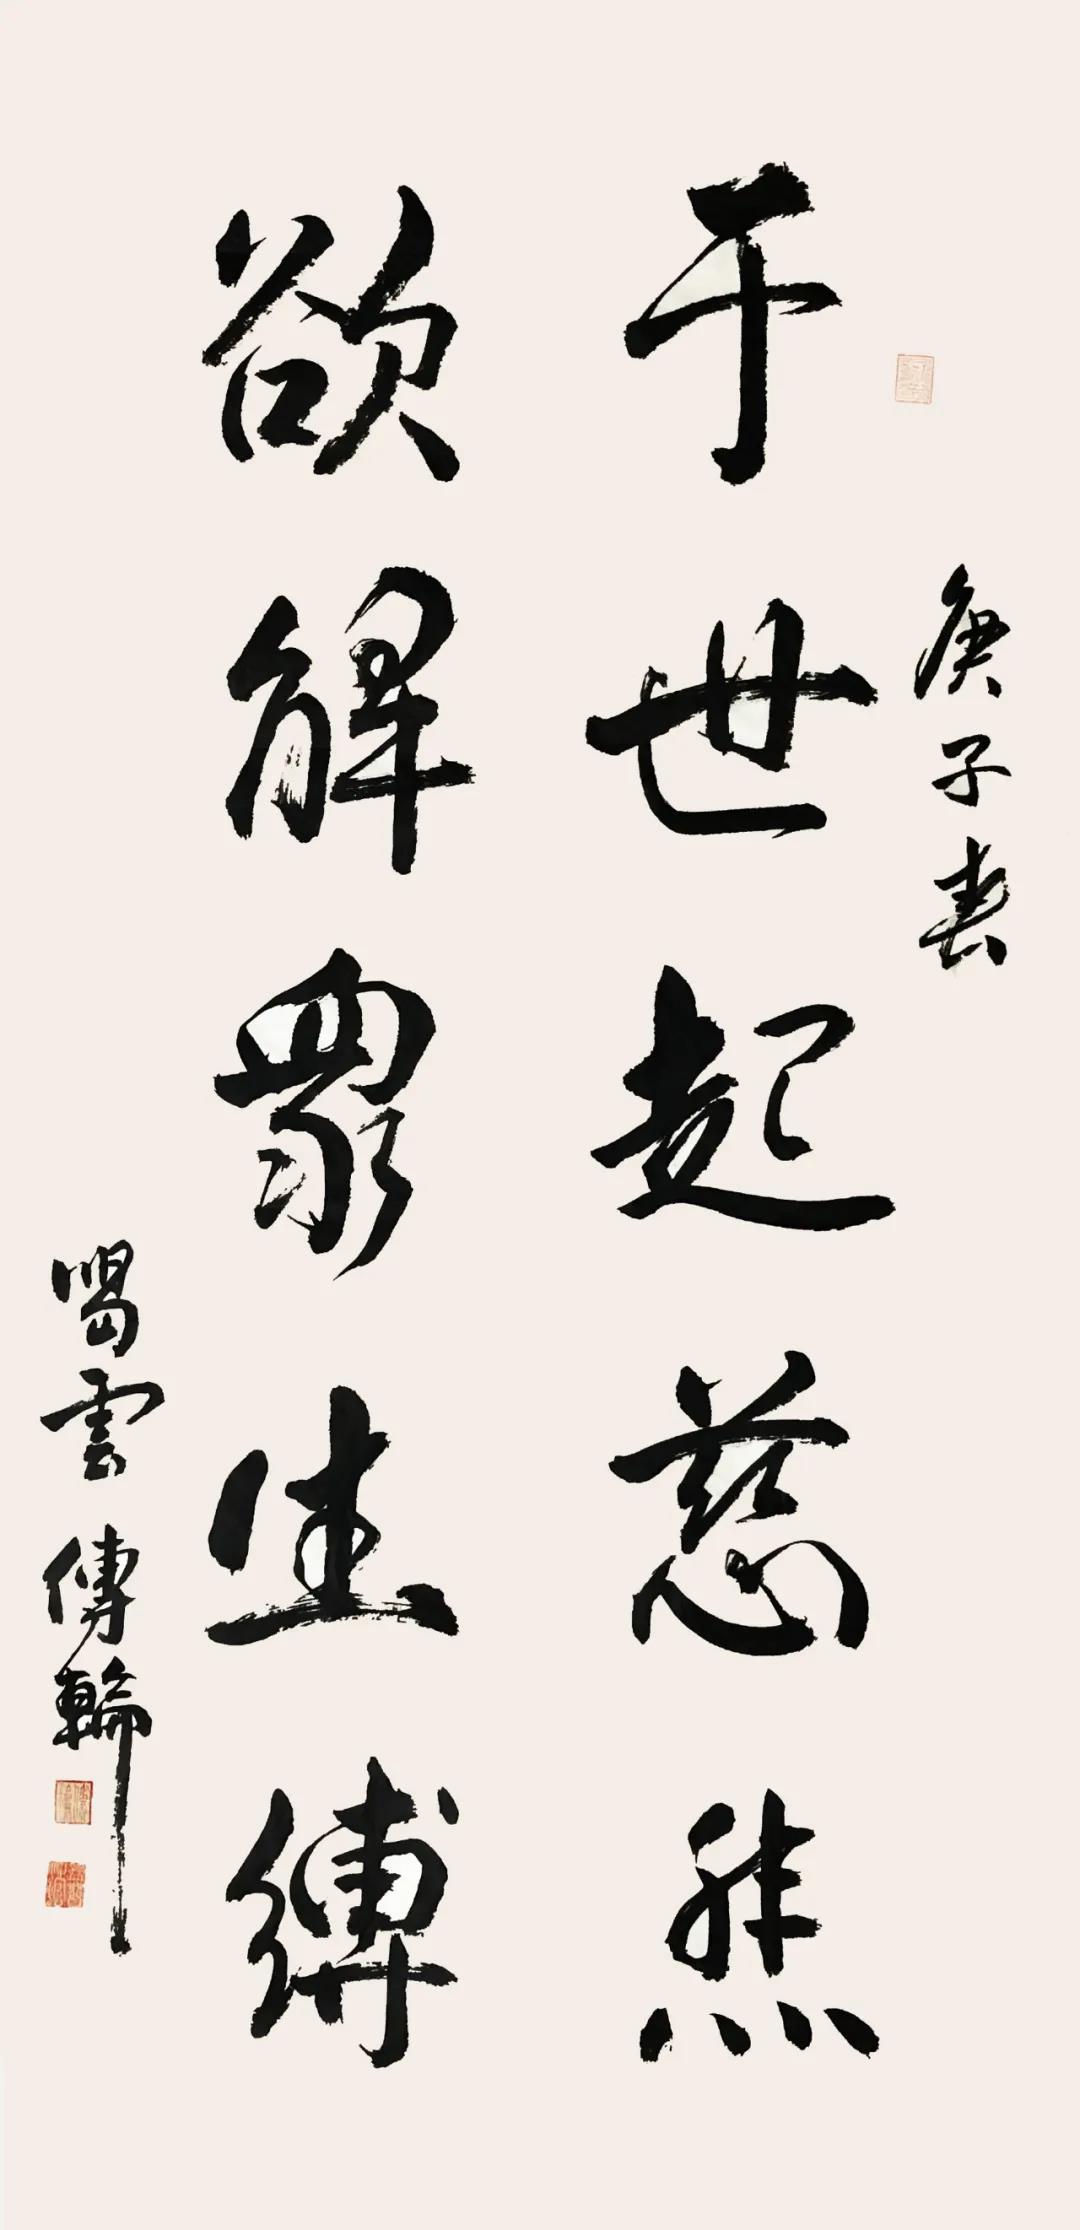 庚子春
于世起慈悲
欲解眾生縛
喝雲 傳輪